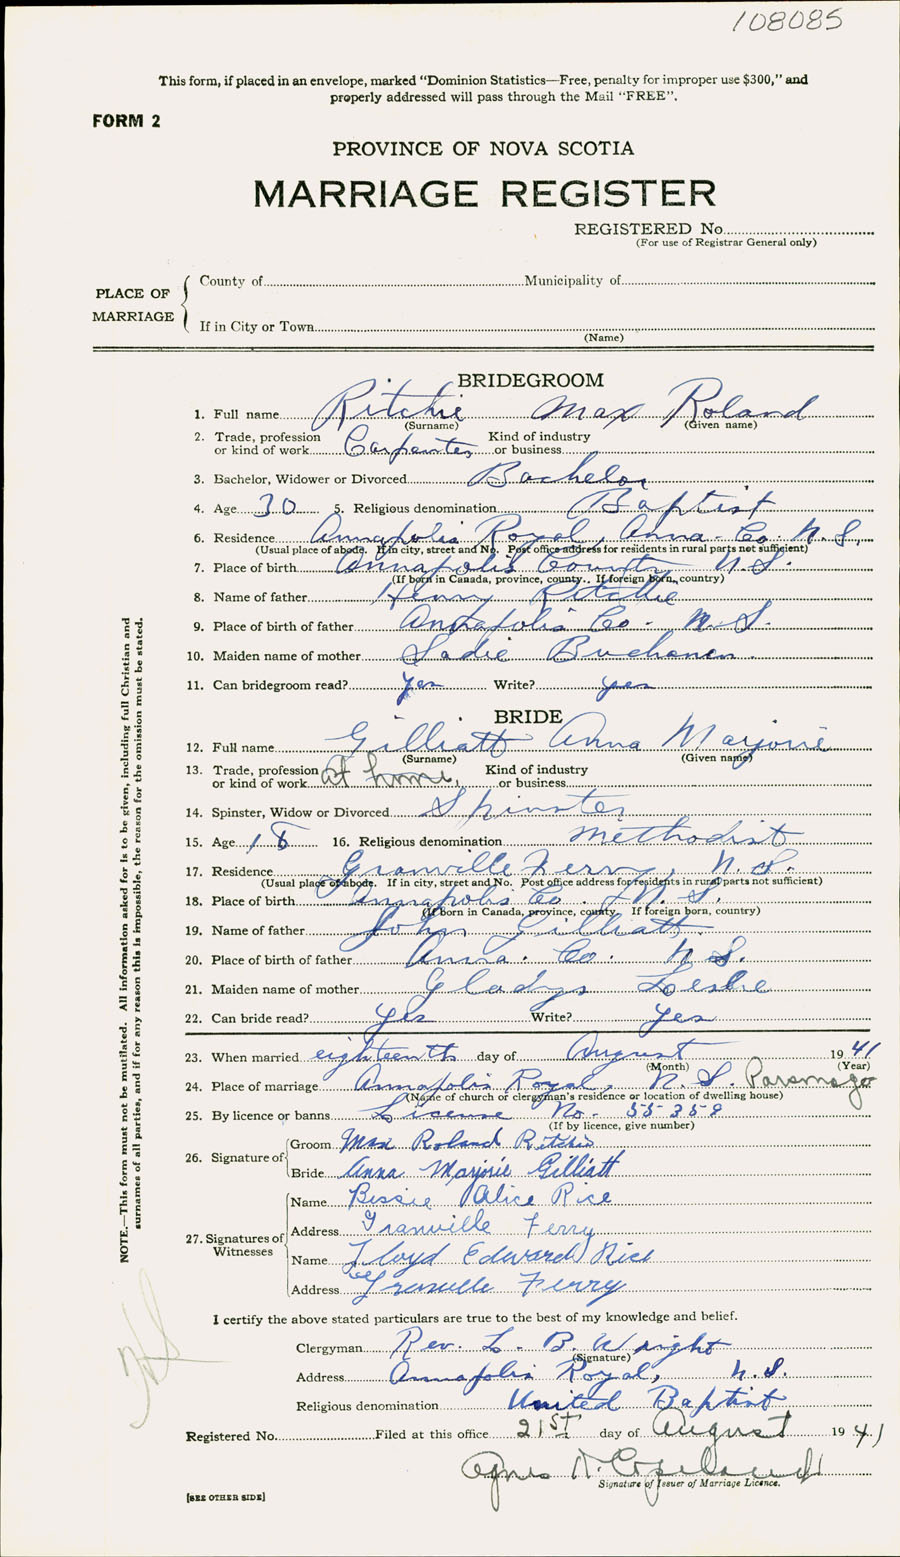 108085
This form, if placed in an envelope, marked "Dominion Statistics—Free, penalty for improper use $300," and
properly addressed will pass through the Mail "FREE".
FORM 2
PROVINCE OF NOVA SCOTIA
MARRIAGE REGISTER
REGISTERED No.
(For use of Registrar General only)
PLACE OF MARRIAGE
County of Municipality of
If in City or Town
(Name)
BRIDEGROOM
1. Full name Ritchie Max Roland
(Surname) (Given name)
2. Trade, profession or kind of work Carpenter Kind of industry or business
3. Bachelor, Widower or Divorced Bachelor
4. Age 30 5. Religious denomination Baptist
6. Residence Annapolis Royal, Anna. Co. N.S.
(Usual place of abode. If in city, street and No. Post office address for residents in rural parts not sufficient)
7. Place of birth Annapolis County N.S.
(If born in Canada, province, county. If foreign born, country)
8. Name of father Henry Ritchie
9. Place of birth of father Annapolis Co. N.S.
10. Maiden name of mother Sadie Buchanen
11. Can bridegroom read? yes Write? yes
BRIDE
12. Full name Gilliatt Anna Marjorie
(Surname) (Given name)
13. Trade, profession or kind of work at home. Kind of industry or business
14. Spinster, Widow or Divorced Spinster
15. Age 18 16. Religious denomination Methodist
17. Residence Granville Ferry, N.S.
(Usual place of abode. If in city, street and No. Post office address for residents in rural parts not sufficient)
18. Place of birth Annapolis Co. N.S.
(If born in Canada, province, county If foreign born, country)
19. Name of father John Gilliatt
20. Place of birth of father Anna. Co. N.S.
21. Maiden name of mother Gladys Leslie
22. Can bride read? Yes Write? Yes
23. When married eighteenth day of August 1941
(Month) (Year)
24. Place of marriage Annapolis Royal, N.S. Parsonage
(Name of church or clergyman's residence or location of dwelling house)
25. By licence or banns License No. 55358
(If by licence, give number)
26. Signature of Groom Max Roland Ritchie
Bride Anna Marjorie Gilliatt
27. Signatures of Witnesses
Name Bessie Alice Rice
Address Granville Ferry
Name Lloyd Edward Rice
Address Granville Ferry
I certify the above stated particulars are true to the best of my knowledge and belief.
Clergyman Rev. L. B. Wright
(Signature)
Address Annapolis Royal, N.S.
Religious denomination United Baptist
Registered No. Filed at this office 21st day of August 1941
Agnes N. Copeland
Signature of Issuer of Marriage Licence.
[SEE OTHER SIDE]
NOTE.—This form must not be mutilated. All information asked for is to be given, including full Christian and
surnames of all parties, and if for any reason this is impossible, the reason for the omission must be stated.